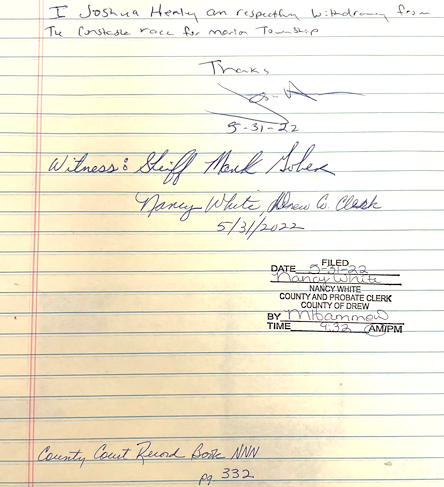 I Joshua Healy am respectfully Withdrawing from
The Constable race for Marion Township
Thanks
5-31-22
Witness: Sheriff Mark Gober
Nancy White, Drew Co. Clerk
5/31/2022
FILED
DATE 5-31-22
Nancy White
NANCY WHITE
COUNTY AND PROBATE CLERK
COUNTY OF DREW
BY
TIME 9:32 AM/PM
County Court Record Book NNN
pg. 332